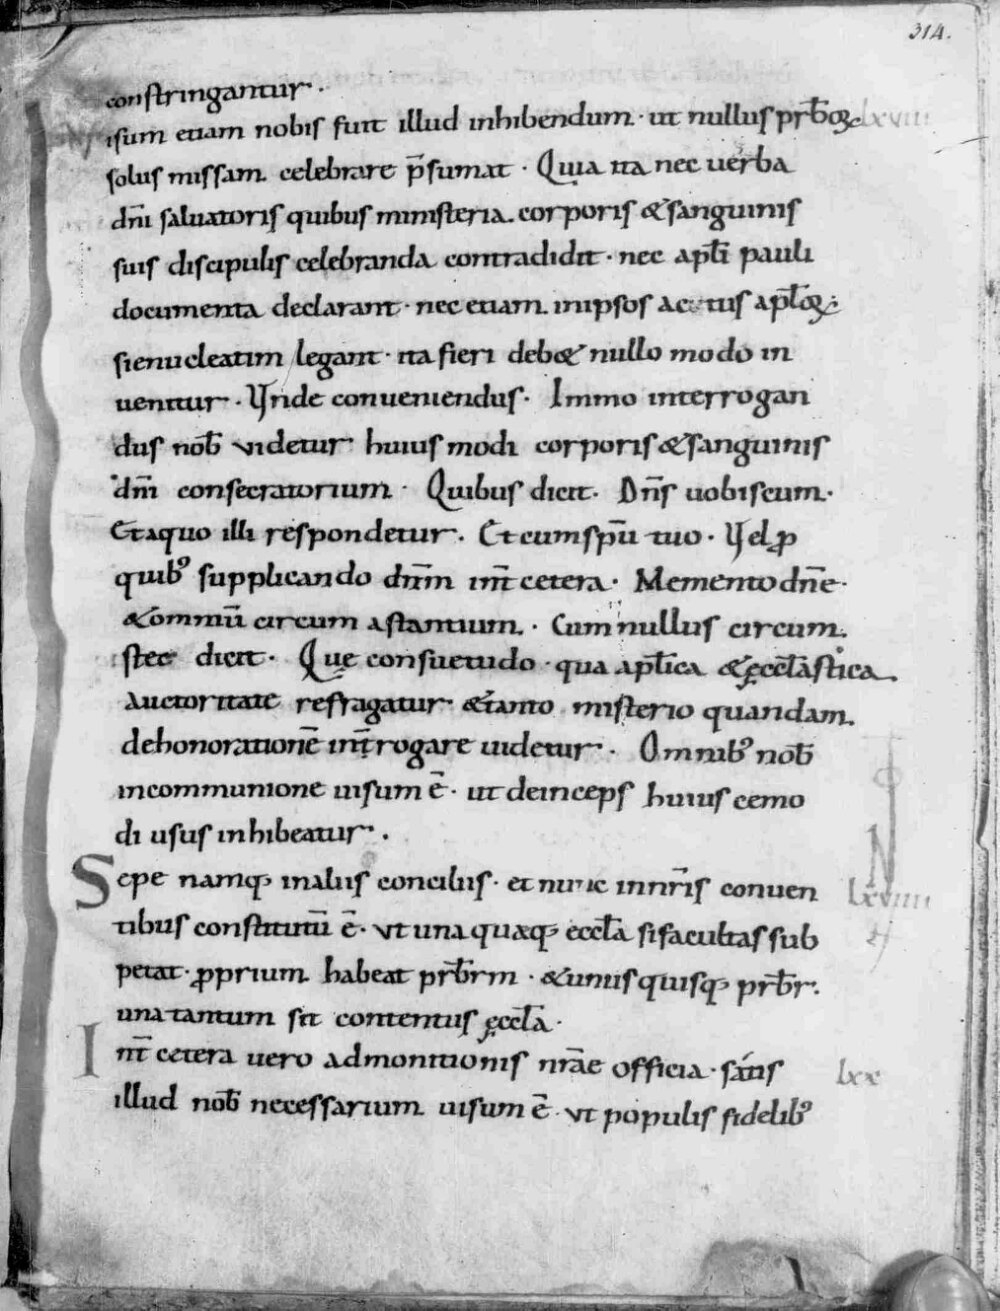 314.
constringantur.
isum etiam nobis fuit illud inhibendum· ut nullus prƀoꝝ lxviii
solus missam celebrare p̄sumat· Quia ita nec uerba
dn̄i saluatoris quibus ministeria corporis &sanguinis
suis discipulis celebranda contradidit· nec apłi pauli
documenta declarant· nec etiam inipsos actus apłoꝝ·
sienucleatim legant· ita fieri deb& nullo modo in
uenitur· Vnde conueniendus· Immo interrogan
dus nob̄ videtur huius modi corporis &sanguinis
dn̄i consecratorium· Quibus dicit· Dn̄s uobiscum·
Etaquo illi respondetur. Et cumspū tuo· Vel ꝓ
quib᾽ supplicando dn̄m int̄ cetera· Memento dn̄e·
&omniū circum astantium.· Cum nullus circum
stet dicit· Que consuetudo· qua apłica &ęccłastica
auctoritate refragatur &tanto misterio quandam
dehonorationē int̄rogare uidetur· Omnib᾽ nob̄
incommunione uisum ē· ut deinceps huiuscemo
di usus inhibeatur.
Sepe namq; inaliis conciliis· et nunc innr̄is conuen lxviiii
tibus constitutū ē· vt una quæq; eccła sifacultas sub
petat· ꝓprium habeat prƀrm· &unus quisq; prƀr.
una tantum sit contentus ęccła·
Int̄ cetera uero admonitionis nr̄ae officia· sāntis lxx
illud nob̄ necessarium uisum ē· vt populis fidelib᾽